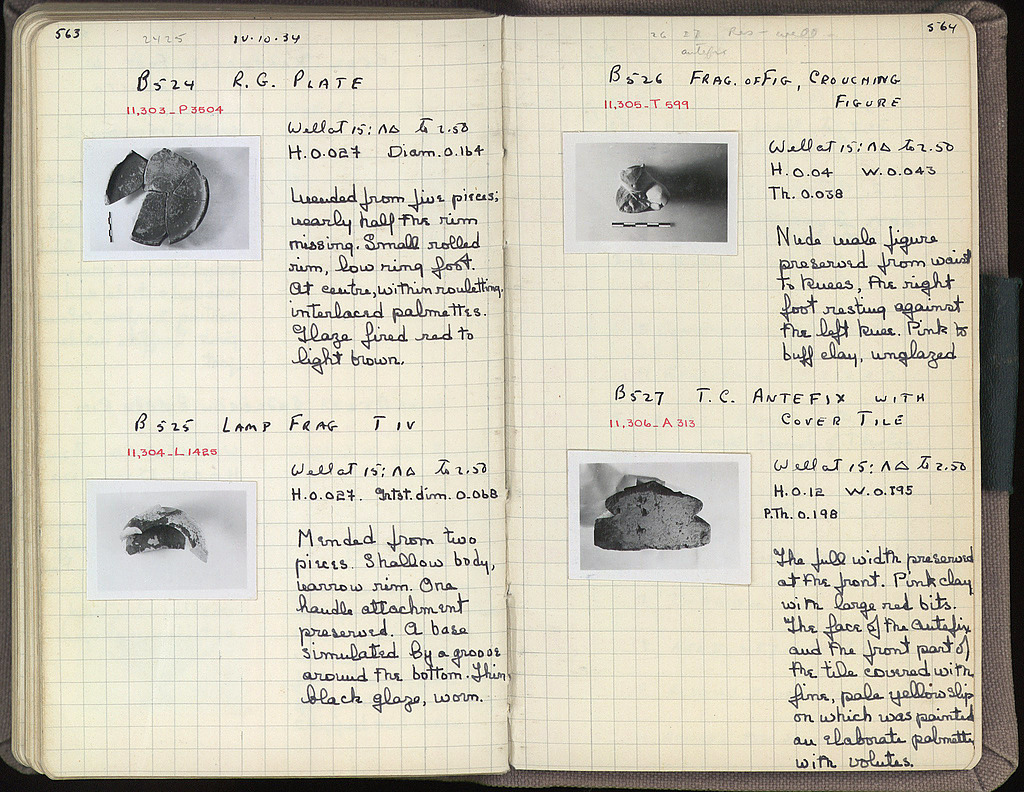 563
2425
IV·10·34
B524 R.G. PLATE
11,303_P3504
Well at 15:ΛΔ to 2.50
H. 0.027 Diam. 0.164
Mended from five pieces;
nearly half the rim
missing. Small rolled
rim, low ring foot.
At centre, within rouletting,
interlaced palmettes.
Glaze fired red to
light brown.
B525 LAMP FRAG T IV
11,304_L1425
Well at 15:ΛΔ to 2.50
H. 0.027. Grtst. dim. 0.068
Mended from two
pieces. Shallow body,
narrow rim. One
handle attachment
preserved. A base
simulated by a groove
around the bottom. Thin
black glaze, worn.
564
26 27 Res - well -
antefix
B526 FRAG. OF FIG, CROUCHING
FIGURE
11,305_T599
Well at 15:ΛΔ to 2.50
H. 0.04 W. 0.043
Th. 0.038
Nude male figure
preserved from waist
to knees, the right
foot resting against
the left knee. Pink to
buff clay, unglazed
B527 T.C. ANTEFIX WITH
COVER TILE
11,306_A313
Well at 15:ΛΔ to 2.50
H. 0.12 W. 0.195
P.Th. 0.198
The full width preserved
at the front. Pink clay
with large red bits.
The face of the antefix
and the front part of
the tile covered with
fine, pale yellow slip
on which was painted
an elaborate palmette
with volutes.